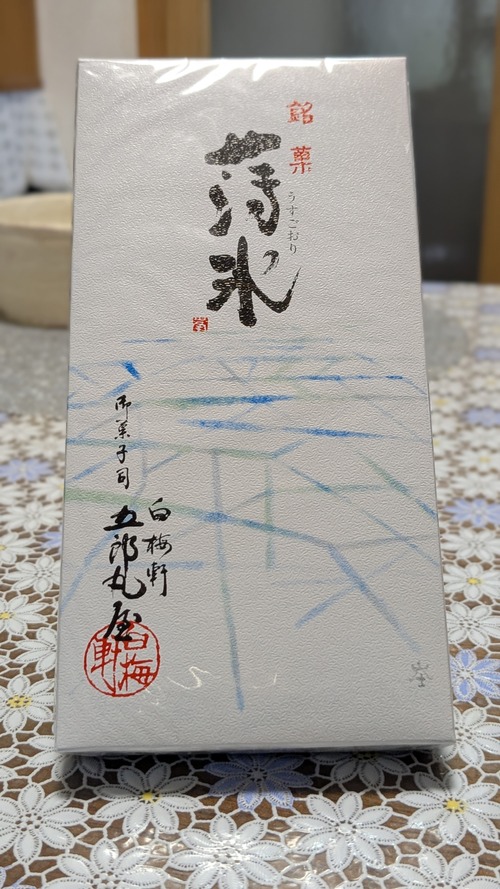 銘菓
薄氷
うすごおり
御菓子司
白梅軒
五郎丸屋
白梅軒